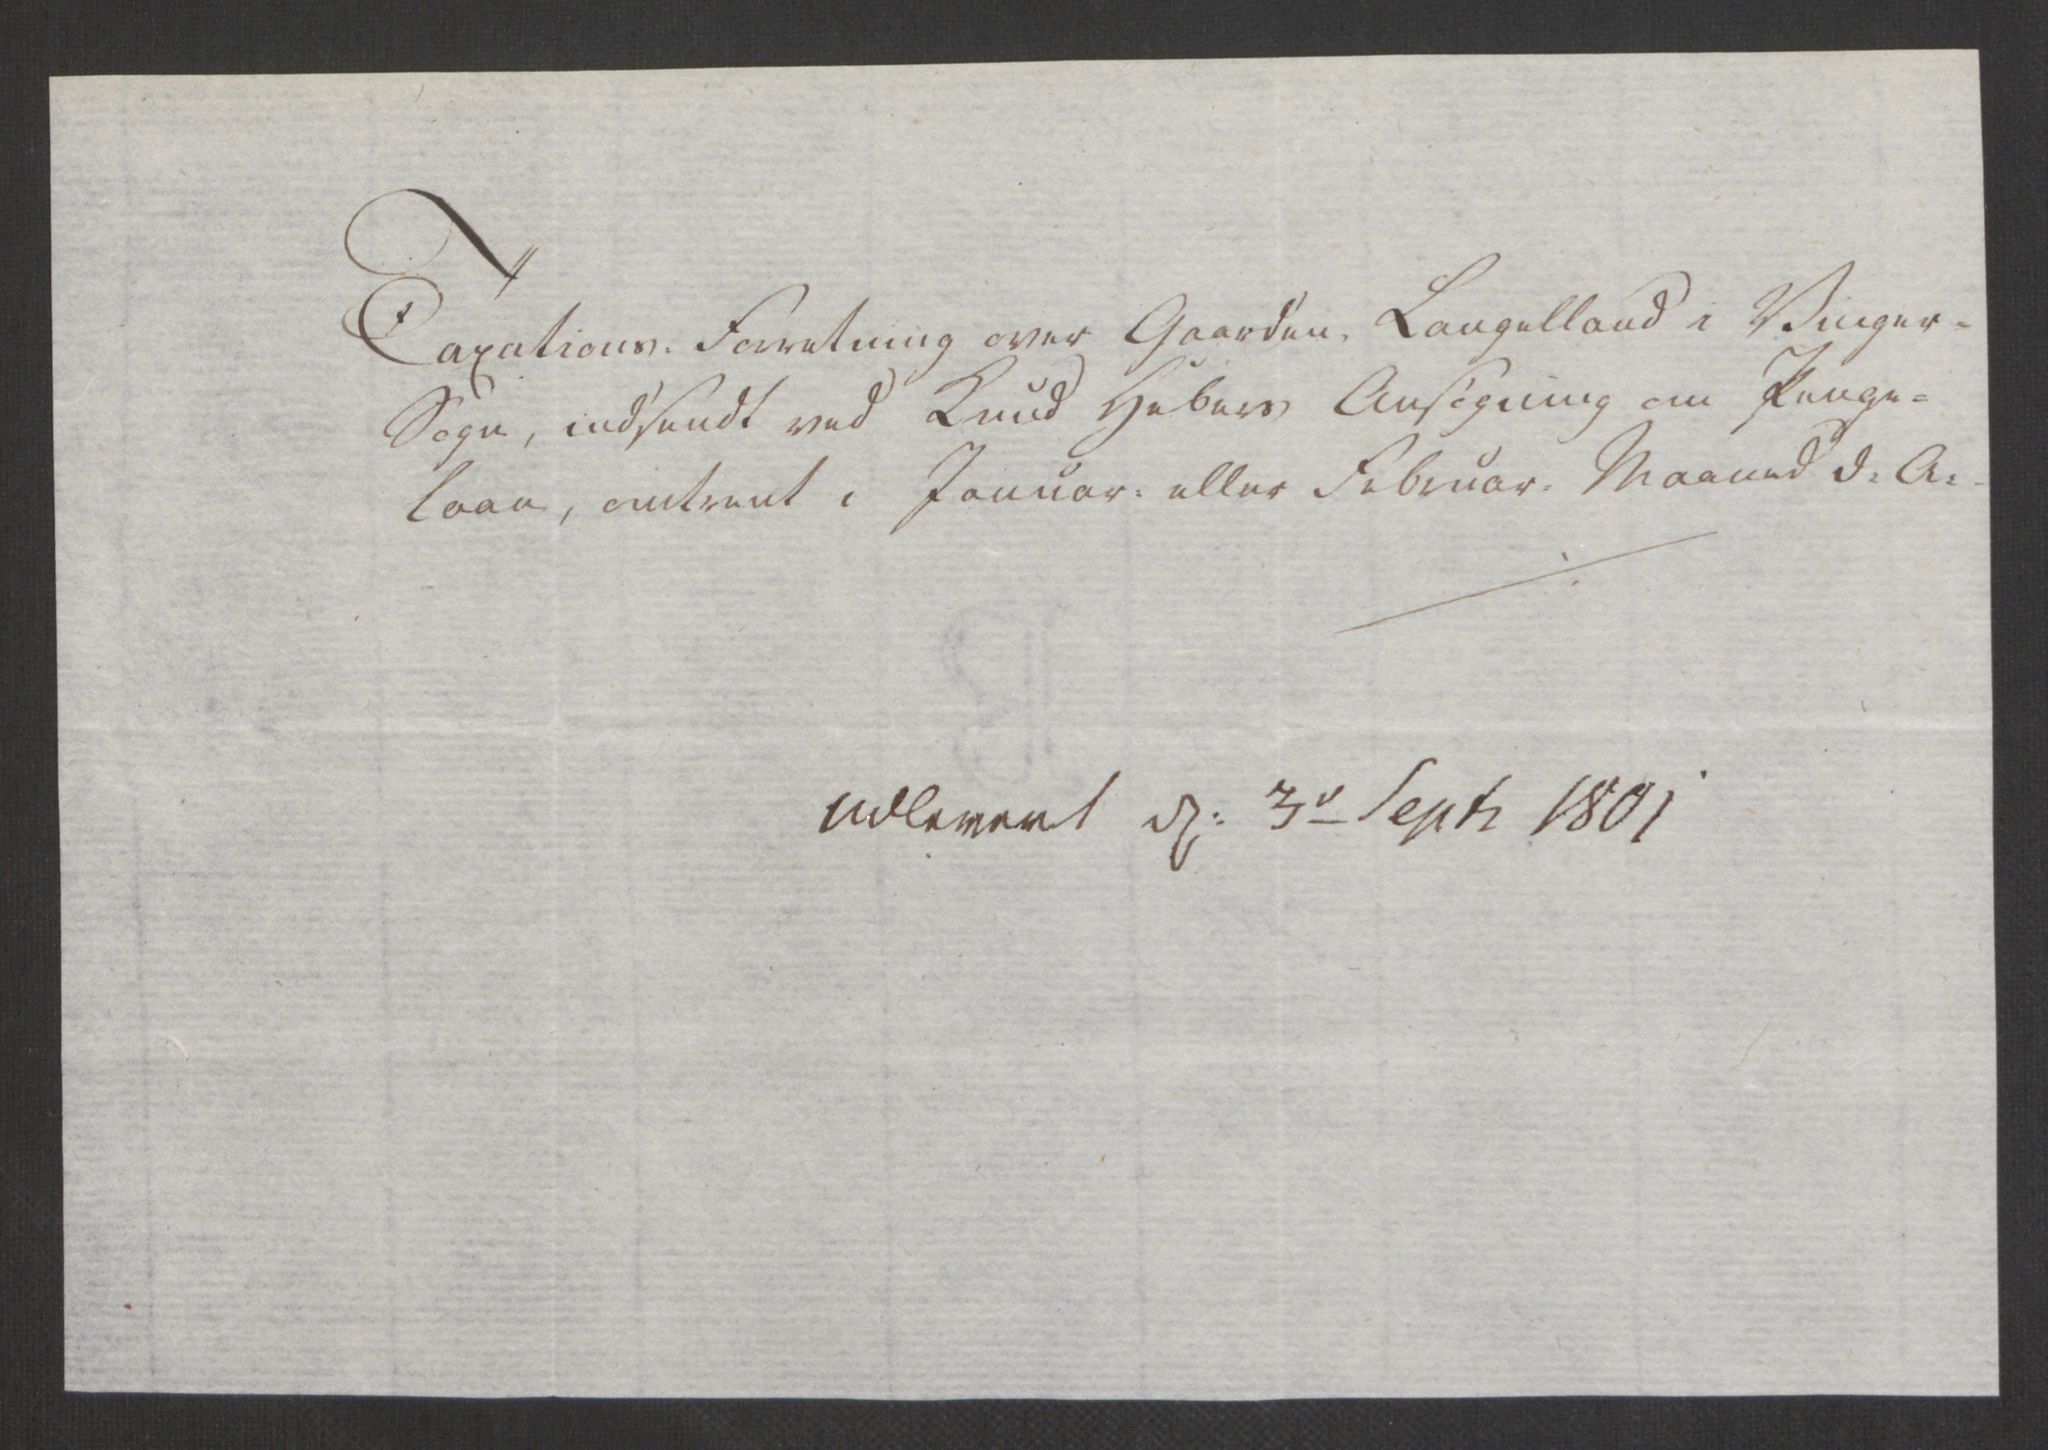 Taxations-Forretning over Gaarden Langelland i Vinger-
Sogn, indsendt ved Knud Hebers Ansøgning om Penge-
laan, omtrent i Januar- eller Februar-Maaned d. A.
udlevert d. 3d Septr 1801